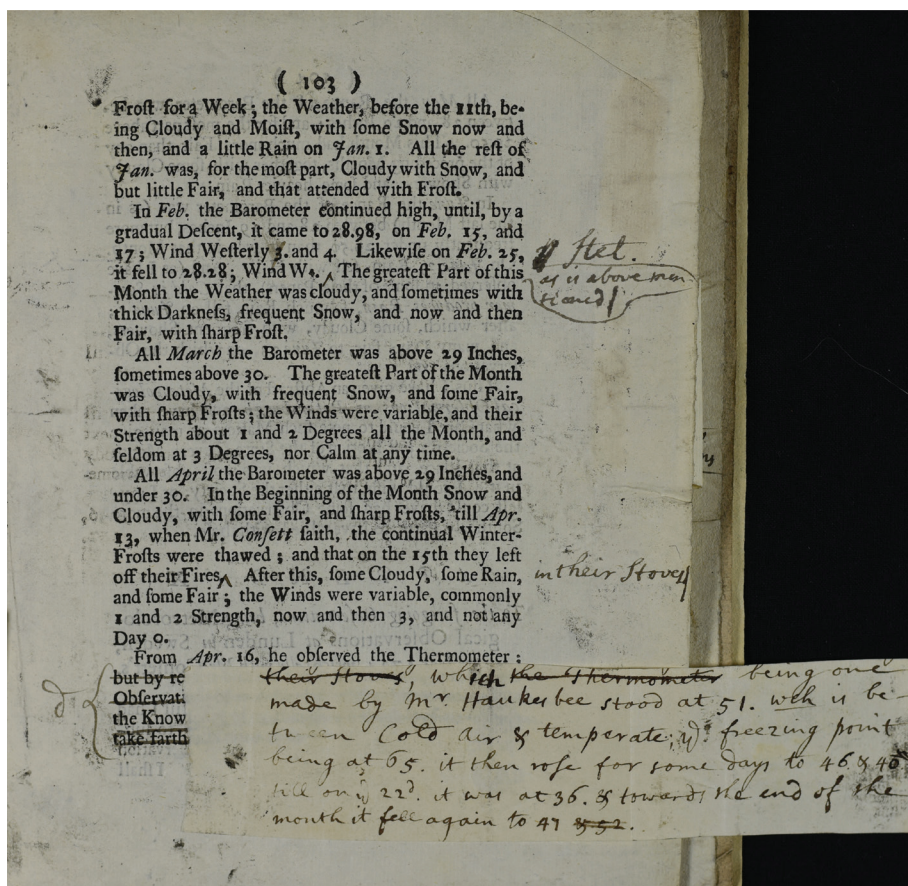 ( 103 )
Froſt for a Week; the Weather, before the 11th, be-
ing Cloudy and Moiſt, with ſome Snow now and
then, and a little Rain on Jan. 1. All the reſt of
Jan. was, for the moſt part, Cloudy with Snow, and
but little Fair, and that attended with Froſt.
In Feb. the Barometer continued high, until, by a
gradual Deſcent, it came to 28.98, on Feb. 15, and
17; Wind Weſterly 3. and 4. Likewiſe on Feb. 25,
ſtet.
it fell to 28.28; Wind W4. ‸ The greateſt Part of this
as is above men
tioned
Month the Weather was cloudy, and ſometimes with
thick Darkneſs, frequent Snow, and now and then
Fair, with ſharp Froſt.
All March the Barometer was above 29 Inches,
ſometimes above 30. The greateſt Part of the Month
was Cloudy, with frequent Snow, and ſome Fair,
with ſharp Froſts; the Winds were variable, and their
Strength about 1 and 2 Degrees all the Month, and
ſeldom at 3 Degrees, nor Calm at any time.
All April the Barometer was above 29 Inches, and
under 30. In the Beginning of the Month Snow and
Cloudy, with ſome Fair, and ſharp Froſts, 'till Apr.
13, when Mr. Conſett ſaith, the continual Winter-
Froſts were thawed; and that on the 15th they left
off their Fires‸ After this, ſome Cloudy, ſome Rain,
in their Stoves
and ſome Fair; the Winds were variable, commonly
1 and 2 Strength, now and then 3, and not any
Day 0.
From Apr. 16, he obſerved the Thermometer:
but by re
Obſervati
the Know
take farth
their Stoves, which the Thermometer being one
made by Mr. Haukesbee stood at 51. wch is be-
tween Cold air & temperate; ye freezing point
being at 65. it then rose for some days to 46. & 40
till on ye 22d. it was at 36. & towards the end of the
month it fell again to 47 & 52.